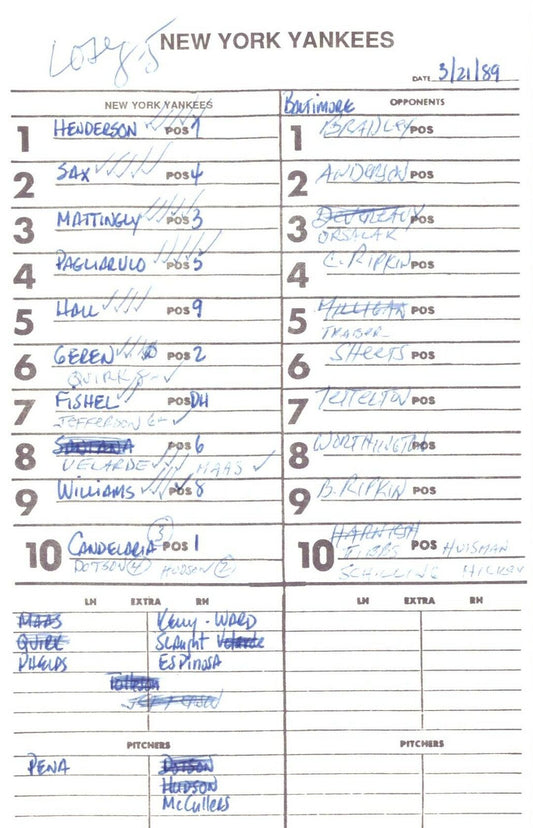 NEW YORK YANKEES
DATE 3/21/89
NEW YORK YANKEES
Baltimore OPPONENTS
1 HENDERSON POS 7
1 BRADLEY POS
2 SAX POS 4
2 ANDERSON POS
3 MATTINGLY POS 3
3 DEVEREAUX POS
ORSALAK
4 PAGLIARULO POS 5
4 C. RIPKIN POS
5 HALL POS 9
5 MILLIGAN POS
TRABER
6 GEREN POS 2
QUIRK 8
6 SHEETS POS
7 FISHEL POS DH
JEFFERSON 6
7 TETTELTON POS
8 SANTANA POS 6
VELARDE MAAS
8 WORTHINGTON POS
9 WILLIAMS POS 8
9 B. RIPKIN POS
10 CANDELARIA 3 POS 1
DOTSON 4 HUDSON 2
10 HARNISH POS HUISMAN
TIBBS
SCHILLING HICKEY
LH EXTRA RH
LH EXTRA RH
MAAS Kelly - WARD
QUIRK Slaught Velarde
PHELPS ESPINOSA
Tolleson
JEFFERSON
PITCHERS
PITCHERS
PENA DOTSON
HUDSON
McCullers